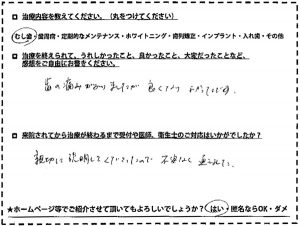 □ 治療内容を教えてください。（丸をつけてください）
むし歯・歯周病・定期的なメンテナンス・ホワイトニング・歯列矯正・インプラント・入れ歯・その他
□ 治療を終えられて、うれしかったこと、良かったこと、大変だったことなど、
感想をご自由にお書きください。
歯の痛みがありましたが 良くなり よかったです。
□ 来院されてから治療が終わるまで受付や医師、衛生士のご対応はいかがでしたか？
親切に説明してくださったので 不安なく 通えました。
★ホームページ等でご紹介させて頂いてもよろしいでしょうか？ はい・匿名ならOK・ダメ